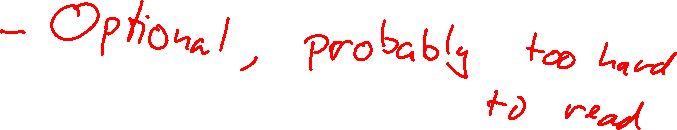 - Optional, probably too hard
to read